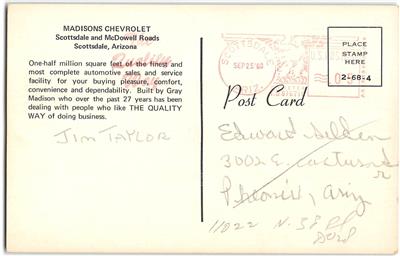 MADISONS CHEVROLET
Scottsdale and McDowell Roads
Scottsdale, Arizona
One-half million square feet of the finest and
most complete automotive sales and service
facility for your buying pleasure, comfort,
convenience and dependability. Built by Gray
Madison who over the past 27 years has been
dealing with people who like THE QUALITY
WAY of doing business.
Jim TAYLOR
Quality
SCOTTSDALE
SEP 25
PLACE
STAMP
HERE
2-68-4
Post Card
Edward
3002 E.
Pheonix, Ariz
11022 N. 38